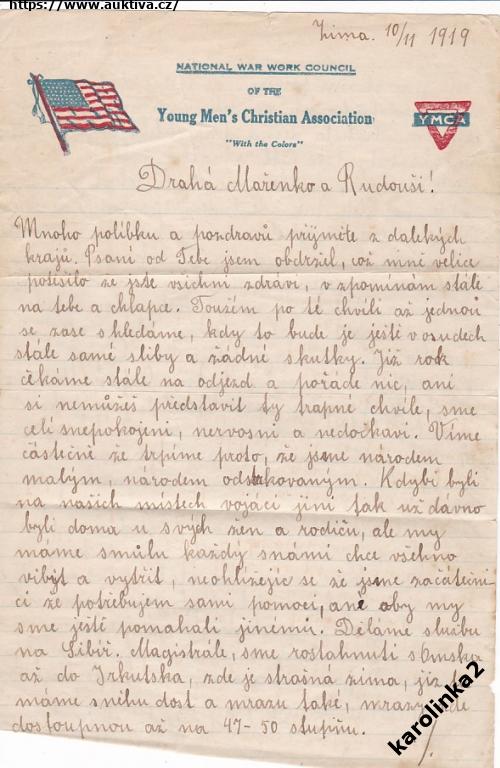 https://www.auktiva.cz/
Zima. 10/11 1919
NATIONAL WAR WORK COUNCIL
OF THE
Young Men's Christian Association
"With the Colors"
YMCA
Drahá Mařenko a Rudouši!
Mnoho políbku a pozdravů prijměte z dalekých
krajů. Psaní od Tebe jsem obdržel, což mně velice
potěšilo že jste všichni zdrávi, v zpomínám stále
na tebe a chlapce. Toužém po té chvíli až jednou
se zase shledáme, kdy to bude je ještě v osudech
stále samé sliby a žádné skutky. Již rok
čěkáme stále na odjezd a pořáde nic, ani
si nemůžeš představit ty trapné chvíle, sme
celí snepokojeni, nervosni a nedočkaví. Víme
částečně že trpíme proto, že jsme národem
malým, národem odstrkovaným. Kdybi byli
na našich místech vojáci jiní tak už dávno
byli doma u svých žen a rodičů, ale my
máme smůlu každý snámi chce všehno
vibýt a vytřít, neohlížejíc se že jsme začáteční-
ci že potřebujem sami pomoci, ané aby my
sme ještě pomahali jinémů. Děláme službu
na Sibiř. Magistrále, sme rostahnuti s Omska
až do Irkutska, zde je strašná zima, již
máme sněhu dost a mrazu také, mrazy zde
dostoupnou až na 47-50 stupňu.
karolinka2